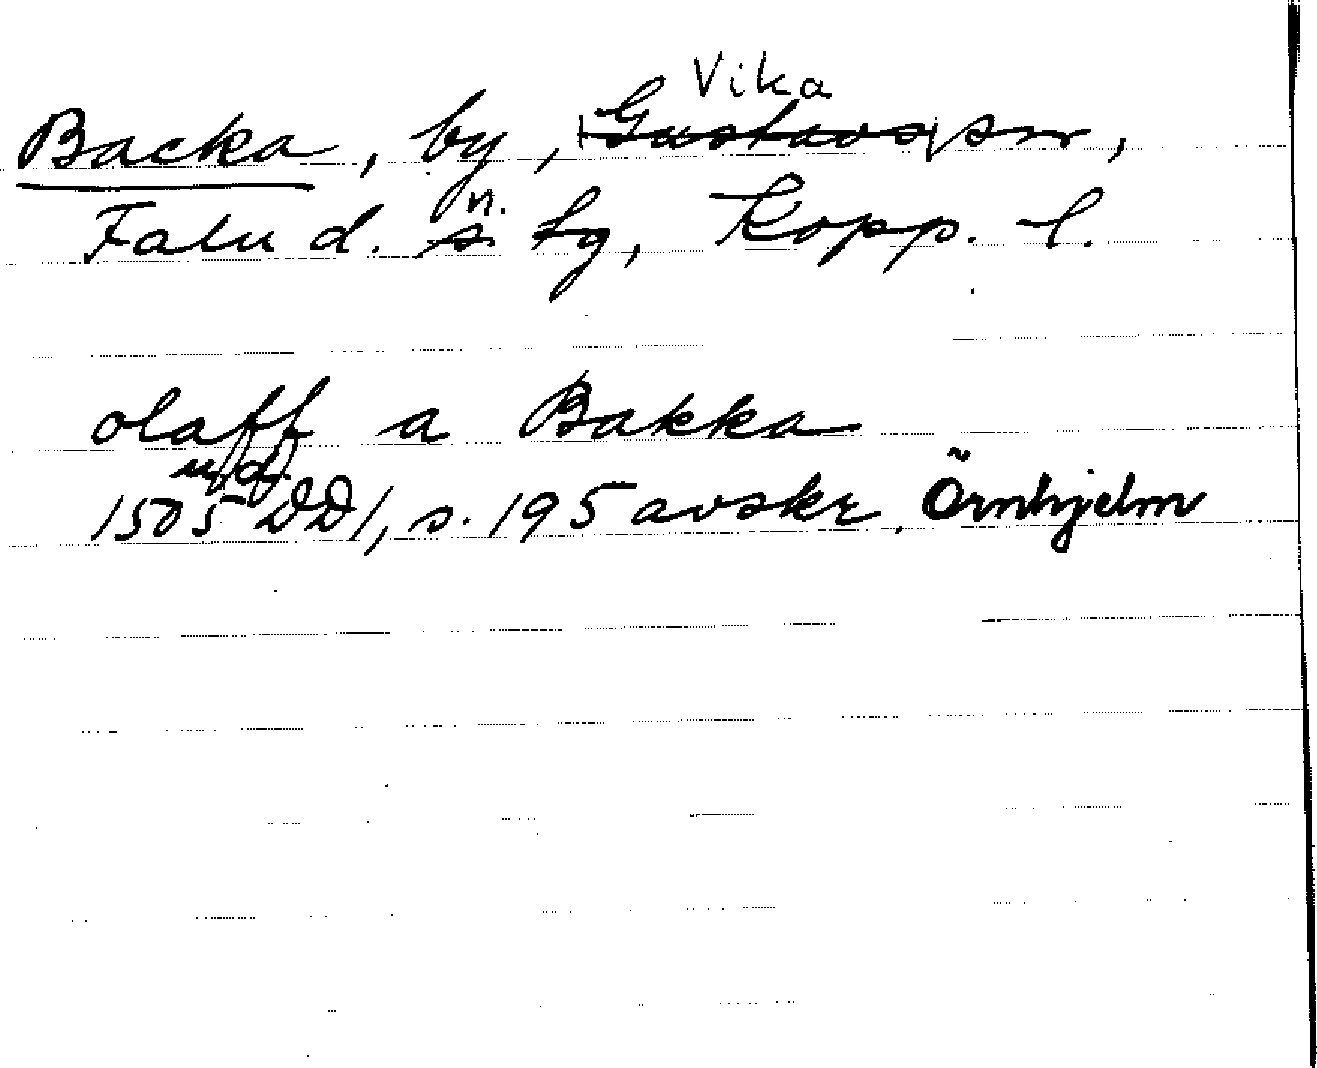 Vika
Backa, by, Gustavs sn,
Falu d. s. n. tg, Kopp. l.
olaff a Bakka
1505 DD1, s. 195 avskr. Örnhjelm